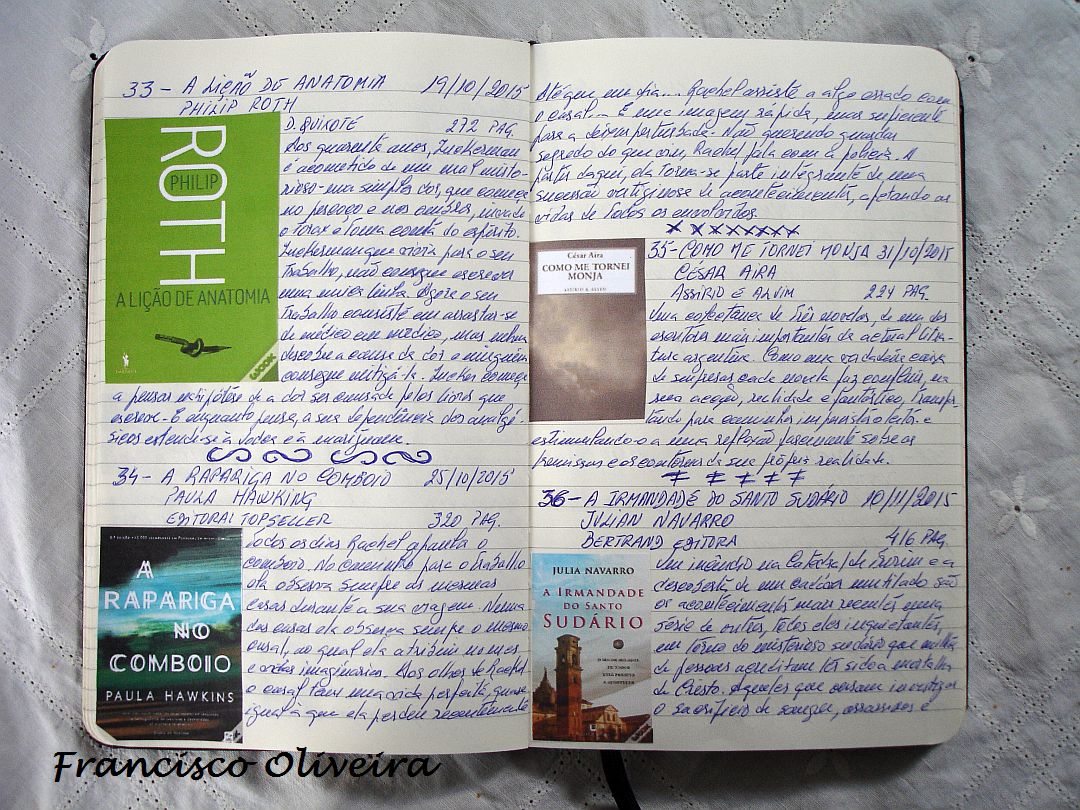 33 - A LIÇÃO DE ANATOMIA 19/10/2015
PHILIP ROTH
D. QUIXOTE 272 PAG.
ROTH
PHILIP
A LIÇÃO DE ANATOMIA
EBOOK
Aos quarenta anos, Zuckerman
é acometido de um mal miste-
rioso - uma simples dor, que começa
no pescoço e nos ombros, invade
o torax e toma conta do espírito.
Zuckerman que vivia para o seu
trabalho, não consegue escrever
uma unica linha. Agora o seu
trabalho consiste em arrastar-se
de médico em médico, mas nenhum
descobre a causa da dor e ninguém
consegue mitigá-la. Zucker começa
a pensar na hipótese de a dor ser causada pelos livros que
escreve. E enquanto pensa, a sua dependência dos analgé-
sicos estende-se à vodca e à marijuana.
34 - A RAPARIGA NO COMBOIO 25/10/2015
PAULA HAWKING
EDITORA TOPSELLER 320 PAG.
A
RAPARIGA
NO
COMBOIO
PAULA HAWKINS
Todos os dias Rachel apanha o
comboio. No caminho para o trabalho
ela observa sempre as mesmas
casas durante a sua viagem. Numa
das casas ela observa sempre o mesmo
casal, ao qual ela atribui nomes
e vidas imaginárias. Aos olhos de Rachel
o casal tem uma vida perfeita, quase
igual à que ela perdeu recentemente
Até que um dia... Rachel assiste a algo errado com
o casal... É uma imagem rápida, mas suficiente
para a deixar perturbada. Não querendo guardar
segredo do que viu, Rachel fala com a polícia. A
partir daqui, ela torna-se parte integrante de uma
sucessão vertiginosa de acontecimentos, afetando as
vidas de todos os envolvidos.
X X X X X X X X
35 - COMO ME TORNEI MONJA 31/10/2015
CÉSAR AIRA
ASSÍRIO E ALVIM 224 PAG.
César Aira
COMO ME TORNEI
MONJA
ASSÍRIO & ALVIM
Uma coletânea de três novelas, de um dos
escritores mais importantes da actual litera-
tura argentina. Como uma verdadeira caixa
de surpresas, cada novela faz confluir, na
sua acção, realidade e fantástico, transpor-
tando para caminhos imprevistos o leitor e
estimulando-o a uma reflexão fascinante sobre as
premissas e os contornos da sua própria realidade.
36 - A IRMANDADE DO SANTO SUDÁRIO 10/11/2015
JULIAN NAVARRO
BERTRAND EDITORA 416 PAG.
JULIA NAVARRO
A IRMANDADE
DO SANTO
SUDÁRIO
Um incêndio na Catedral de Turim e a
descoberta de um cadáver mutilado são
os acontecimentos mais recentes numa
série de outros, todos eles inquietantes,
em torno do misterioso sudário que milhões
de pessoas acreditam ter sido a mortalha
de Cristo. Aqueles que ousam investigar
o sacrifício de sangue, assassinos e
Francisco Oliveira